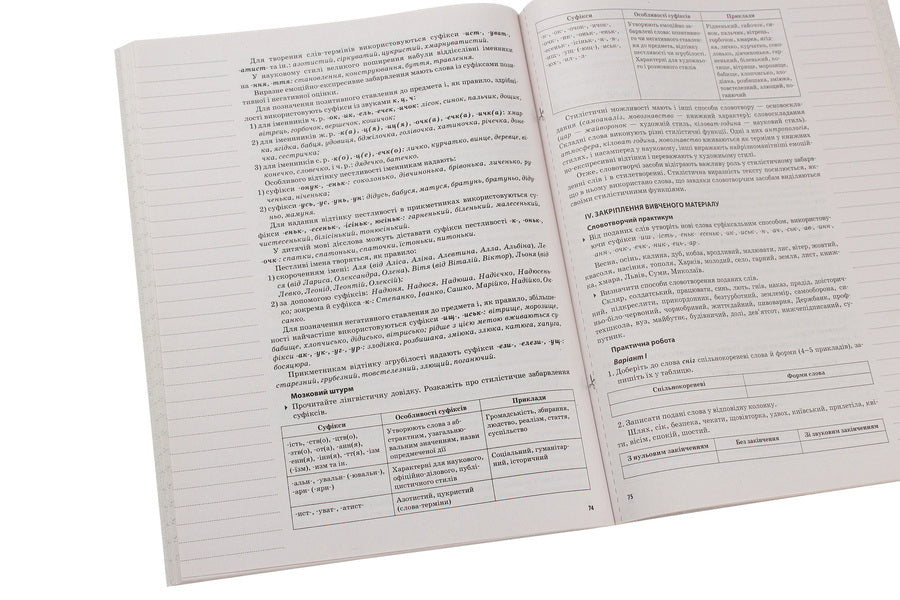 Для творення слів-термінів використовуються суфікси -ист-, -уват-,
-атист- та ін.: азотистий, сіркуватий, цукристий, хмаркуватистий.
У науковому стилі великого поширення набули віддієслівні іменники
на -ння, -ття: становлення, конструювання, буття, травлення.
Виразне емоційно-експресивне забарвлення мають слова із суфіксами пози-
тивної і негативної оцінки.
Для позначення позитивного ставлення до предмета і, як правило, здрібні-
лості використовують суфікси із звуками к, ц, ч:
1) для іменників ч. р. -ок, -ик, -ель, -ечек, -ичок: лісок, синок, пальчик, дощик,
вітрець, горбочок, вершечок, кошичок;
2) для іменників ж. р. -к(а), -ц(я), -иц(я), -очк(а), -ечк(а), -ичк(а): хмар
ка, ягідка, бабця, удовиця, бджілочка, голівочка, хатиночка, річечка, доне-
чка, сестричка;
3) для іменників с. р. -к(о), -ц(е), -ечк(о): личко, курчатко, винце, деревце, ві-
конечко, словечко, і ч. р.: дядечко, батечко.
Особливого відтінку пестливості іменникам надають:
1) суфікси -онук-, -еньк-: соколонько, дівчинонька, брівонька, личенько, ру-
ченька, ніченька;
2) суфікси -усь, -ус, -унь, -ун: дідусь, бабуся, матуся, братунь, братуньо, діду-
ньо, мамуня.
Для надання відтінку пестливості в прикметниках використовуються су-
фікси -еньк-, -есеньк-, -ісіньк-, юсіньк-: гарненький, біленький, малесенький,
чистесенький, білісінький, тонюсінький.
У дитячій мові дієслова можуть діставати суфікси пестливості -к-, -оньк-,
-очк-: спатки, спатоньки, спаточки, їстоньки, питоньки.
Пестливі імена творяться, як правило:
1) скороченням імені: Аля (від Аліса, Аліна, Алевтина, Алла, Альбіна), Ле-
ся (від Лариса, Олександра, Олена), Вітя (від Віталій, Віктор), Льоня (від
Левко, Леонід, Леонтій, Олексій):
2) за допомогою суфіксів: Надюня, Надюся, Надюша, Надієчко, Надюсень-
ко; зокрема й суфікса -к-: Степанко, Іванко, Сашко, Марійко, Надійко, Ок-
санко.
Для позначення негативного ставлення до предмета і, як правило, збільше-
ності найчастіше використовуються суфікси -ищ-, -иськ-: вітрище, морозище,
бабище, хлопчисько, дідисько, вітрисько; рідше з цією метою вживаються су-
фікси -ак-, -ук-, -уг-, -ур-: злодюжка, розбишака, зміюка, злюка, катюга, хапуга,
босяцюра.
Прикметникам відтінку згрубілості надають суфікси -ези-, -елези-, -ущ-:
старезний, грубезний, товстелезний, злющий, поганючий.
Мозковий штурм
Прочитайте лінгвістичну довідку. Розкажіть про стилістичне забарвлення
суфіксів.
Суфікси Особливості суфіксів Приклади
-ість, -ств(о), -цтв(о), Утворюють слова з аб- Громадськість, збирання,
-зтв(о), -от(а), -анн(я), страктним, узагальню- людство, реалізм, стаття,
-енн(я), -інн(я), -тт(я), -ізм вальним значенням, назви суспільство
(-їзм), -изм та ін. опредмеченої дії
-альн-, -увальн- (-ювальн-), Характерні для наукового, Соціальний, гуманітар-
-арн- (-ярн-) офіційно-ділового, публі- ний, історичний
цистичного стилів
-ист-, -уват-, -атист- Азотистий, цукристий
(слова-терміни)
74
Суфікси Особливості суфіксів Приклади
Утворюють емоційно за-
барвлені слова: позитивно-
го чи негативного ставлен-
ня до предмета, відтінку
пестливості чи згрубілості.
Характерні для художньо-
го і розмовного стилів
Стилістичні можливості мають і інші способи словотвору — основоскла-
дання (самоаналіз, мовознавство — книжний характер); словоскладання
(цар — жайворонок — художній стиль, кіловат-година — науковий стиль).
Складні слова виконують різні стилістичні функції. Одні з них антропологія,
атмосфера, кіловат-година, мовознавство вживаються як терміни в книжних
стилях, і насамперед у науковому, інші виражають найрізноманітніші емоцій-
но-експресивні відтінки і переважають у художньому стилі.
Отже, словотворчі засоби відіграють важливу роль у стилістичному забарв-
ленні слів і в стилетворенні. Стилістична виразність тексту посилюється, як-
що в ньому використано слова, що завдяки словотворчим засобам виділяються
своїми стилістичними функціями.
IV. ЗАКРІПЛЕННЯ ВИВЧЕНОГО МАТЕРІАЛУ
Словотворчий практикум
Від поданих слів утворіть нові слова суфіксальним способом, використову-
ючи суфікси
Весна, осінь, калина, дуб, кобза, вродливий, малювати, лис, вітер, жовтий,
квасоля, насіння, тополя, Харків, молодий, село, гарний, земля, лист, книж-
ка, хмара, Львів, Суми, Миколаїв.
Визначити способи словотворення поданих слів.
Скляр, солдатський, працювати, синь, лють, гаїв, наказ, прадід, доісторич-
ний, підкреслити, прикордонник, безтурботний, землемір, самооборона, си-
ньо-біло-червоний, чорнобривий, життєдайний, пивоварня, Держбанк, проф-
техшкола, вуз, майбутнє, будівничий, долі, дев'ятсот, нижчепідписаний, су-
путник.
Практична робота
Варіант І
1. Доберіть до слова сніг спільнокореневі слова й форми (4–5 прикладів), за-
пишіть їх у таблицю.
Спільнокореневі Форми слова
2. Записати подані слова у відповідну колонку.
Шлях, сік, безпека, чекати, щовівторка, удвох, київський, прилетіла, кві-
ти, вісім, спокій, шостий.
З нульовим закінченням Без закінчення Зі звуковим закінченням
75